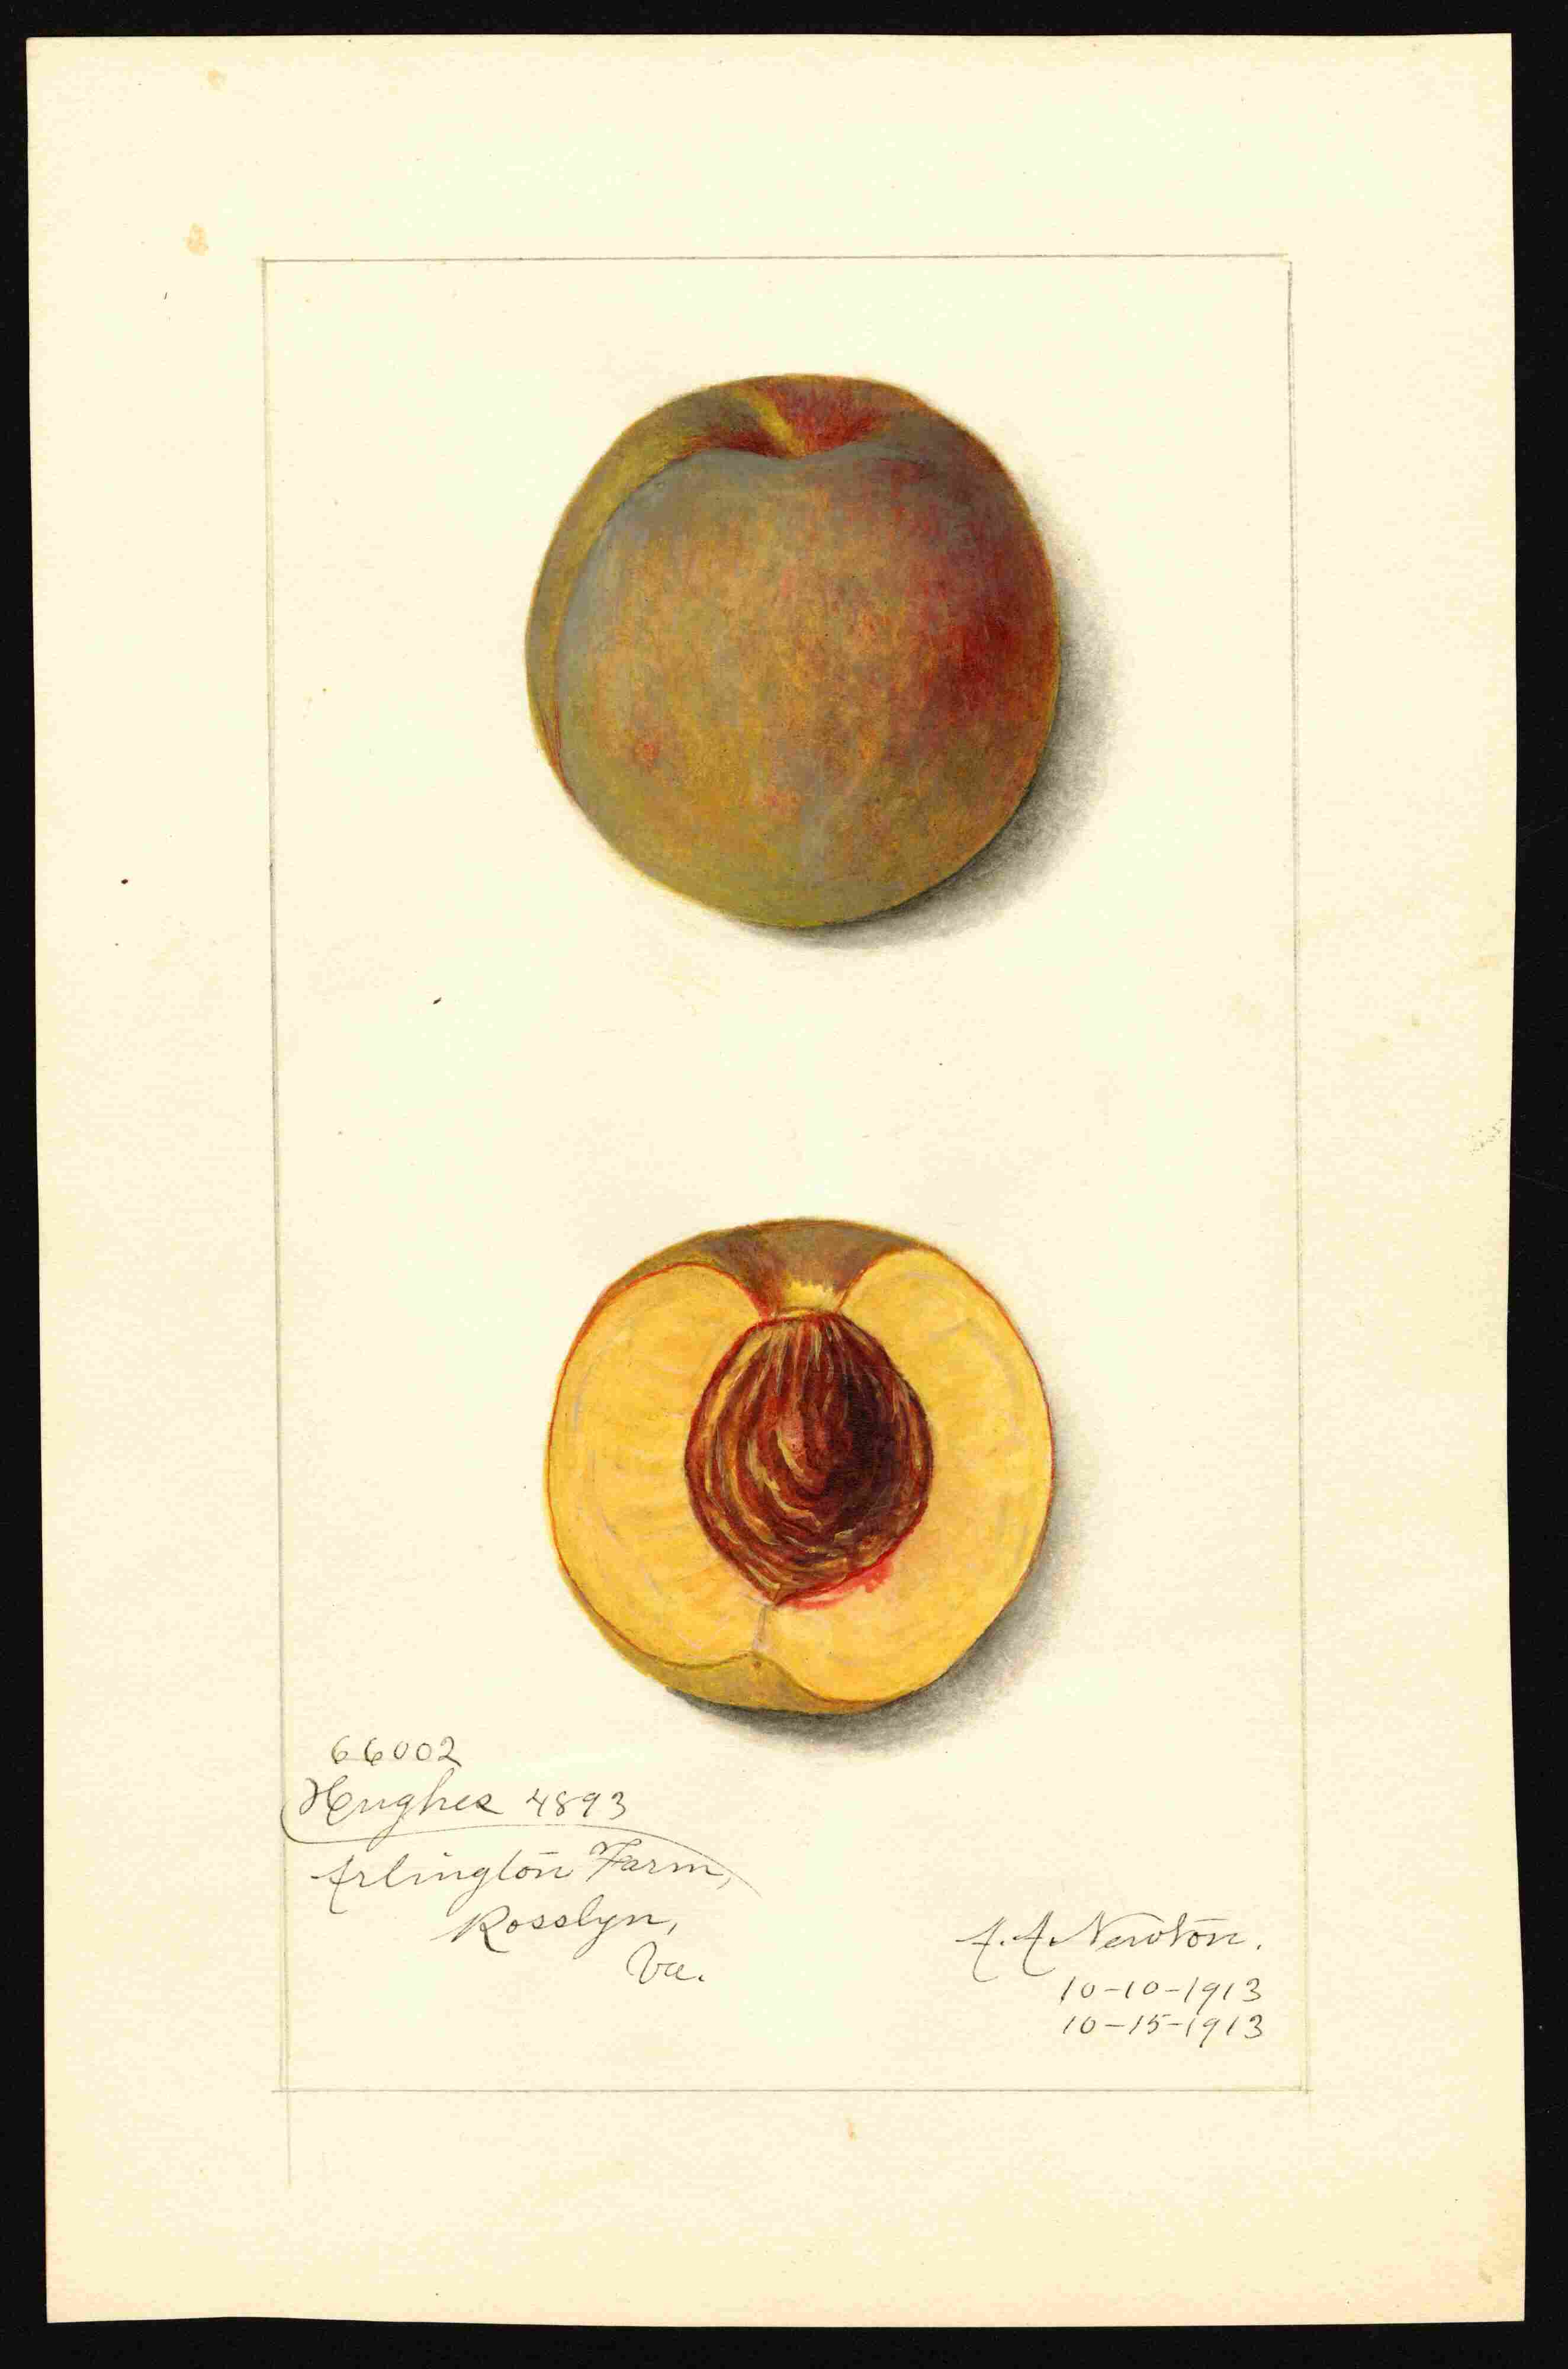 66002
Hughes 4893
Arlington Farm,
Rosslyn,
Va.
A. A. Newton.
10-10-1913
10-15-1913